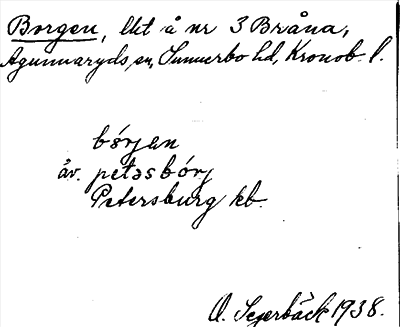 Borgen, lht å nr 3 Bråna,
Agunnaryds sn, Sunnerbo hd, Kronob. l.
bórjan
äv. petəsbórj
Petersburg kb.
O. Segerbäck 1938.